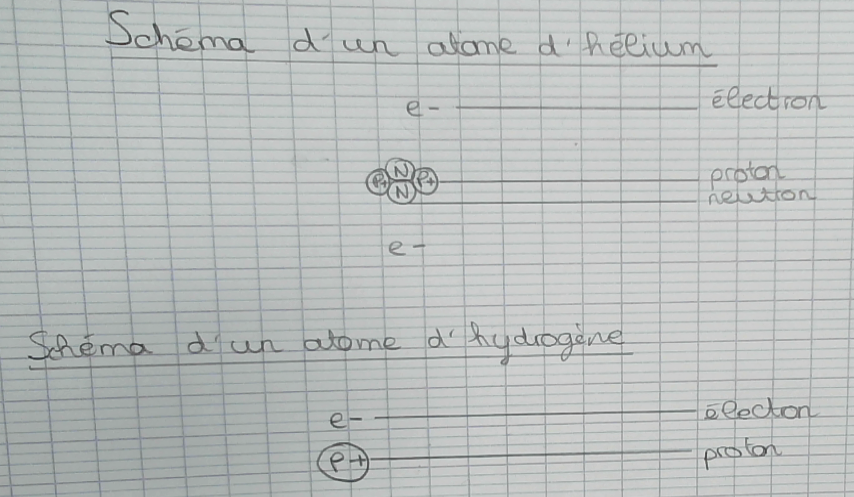 Schéma d'un atome d'hélium
e- électron
N
P+ P+ proton
N neutron
e-
Schéma d'un atome d'hydrogène
e- électron
P+ proton